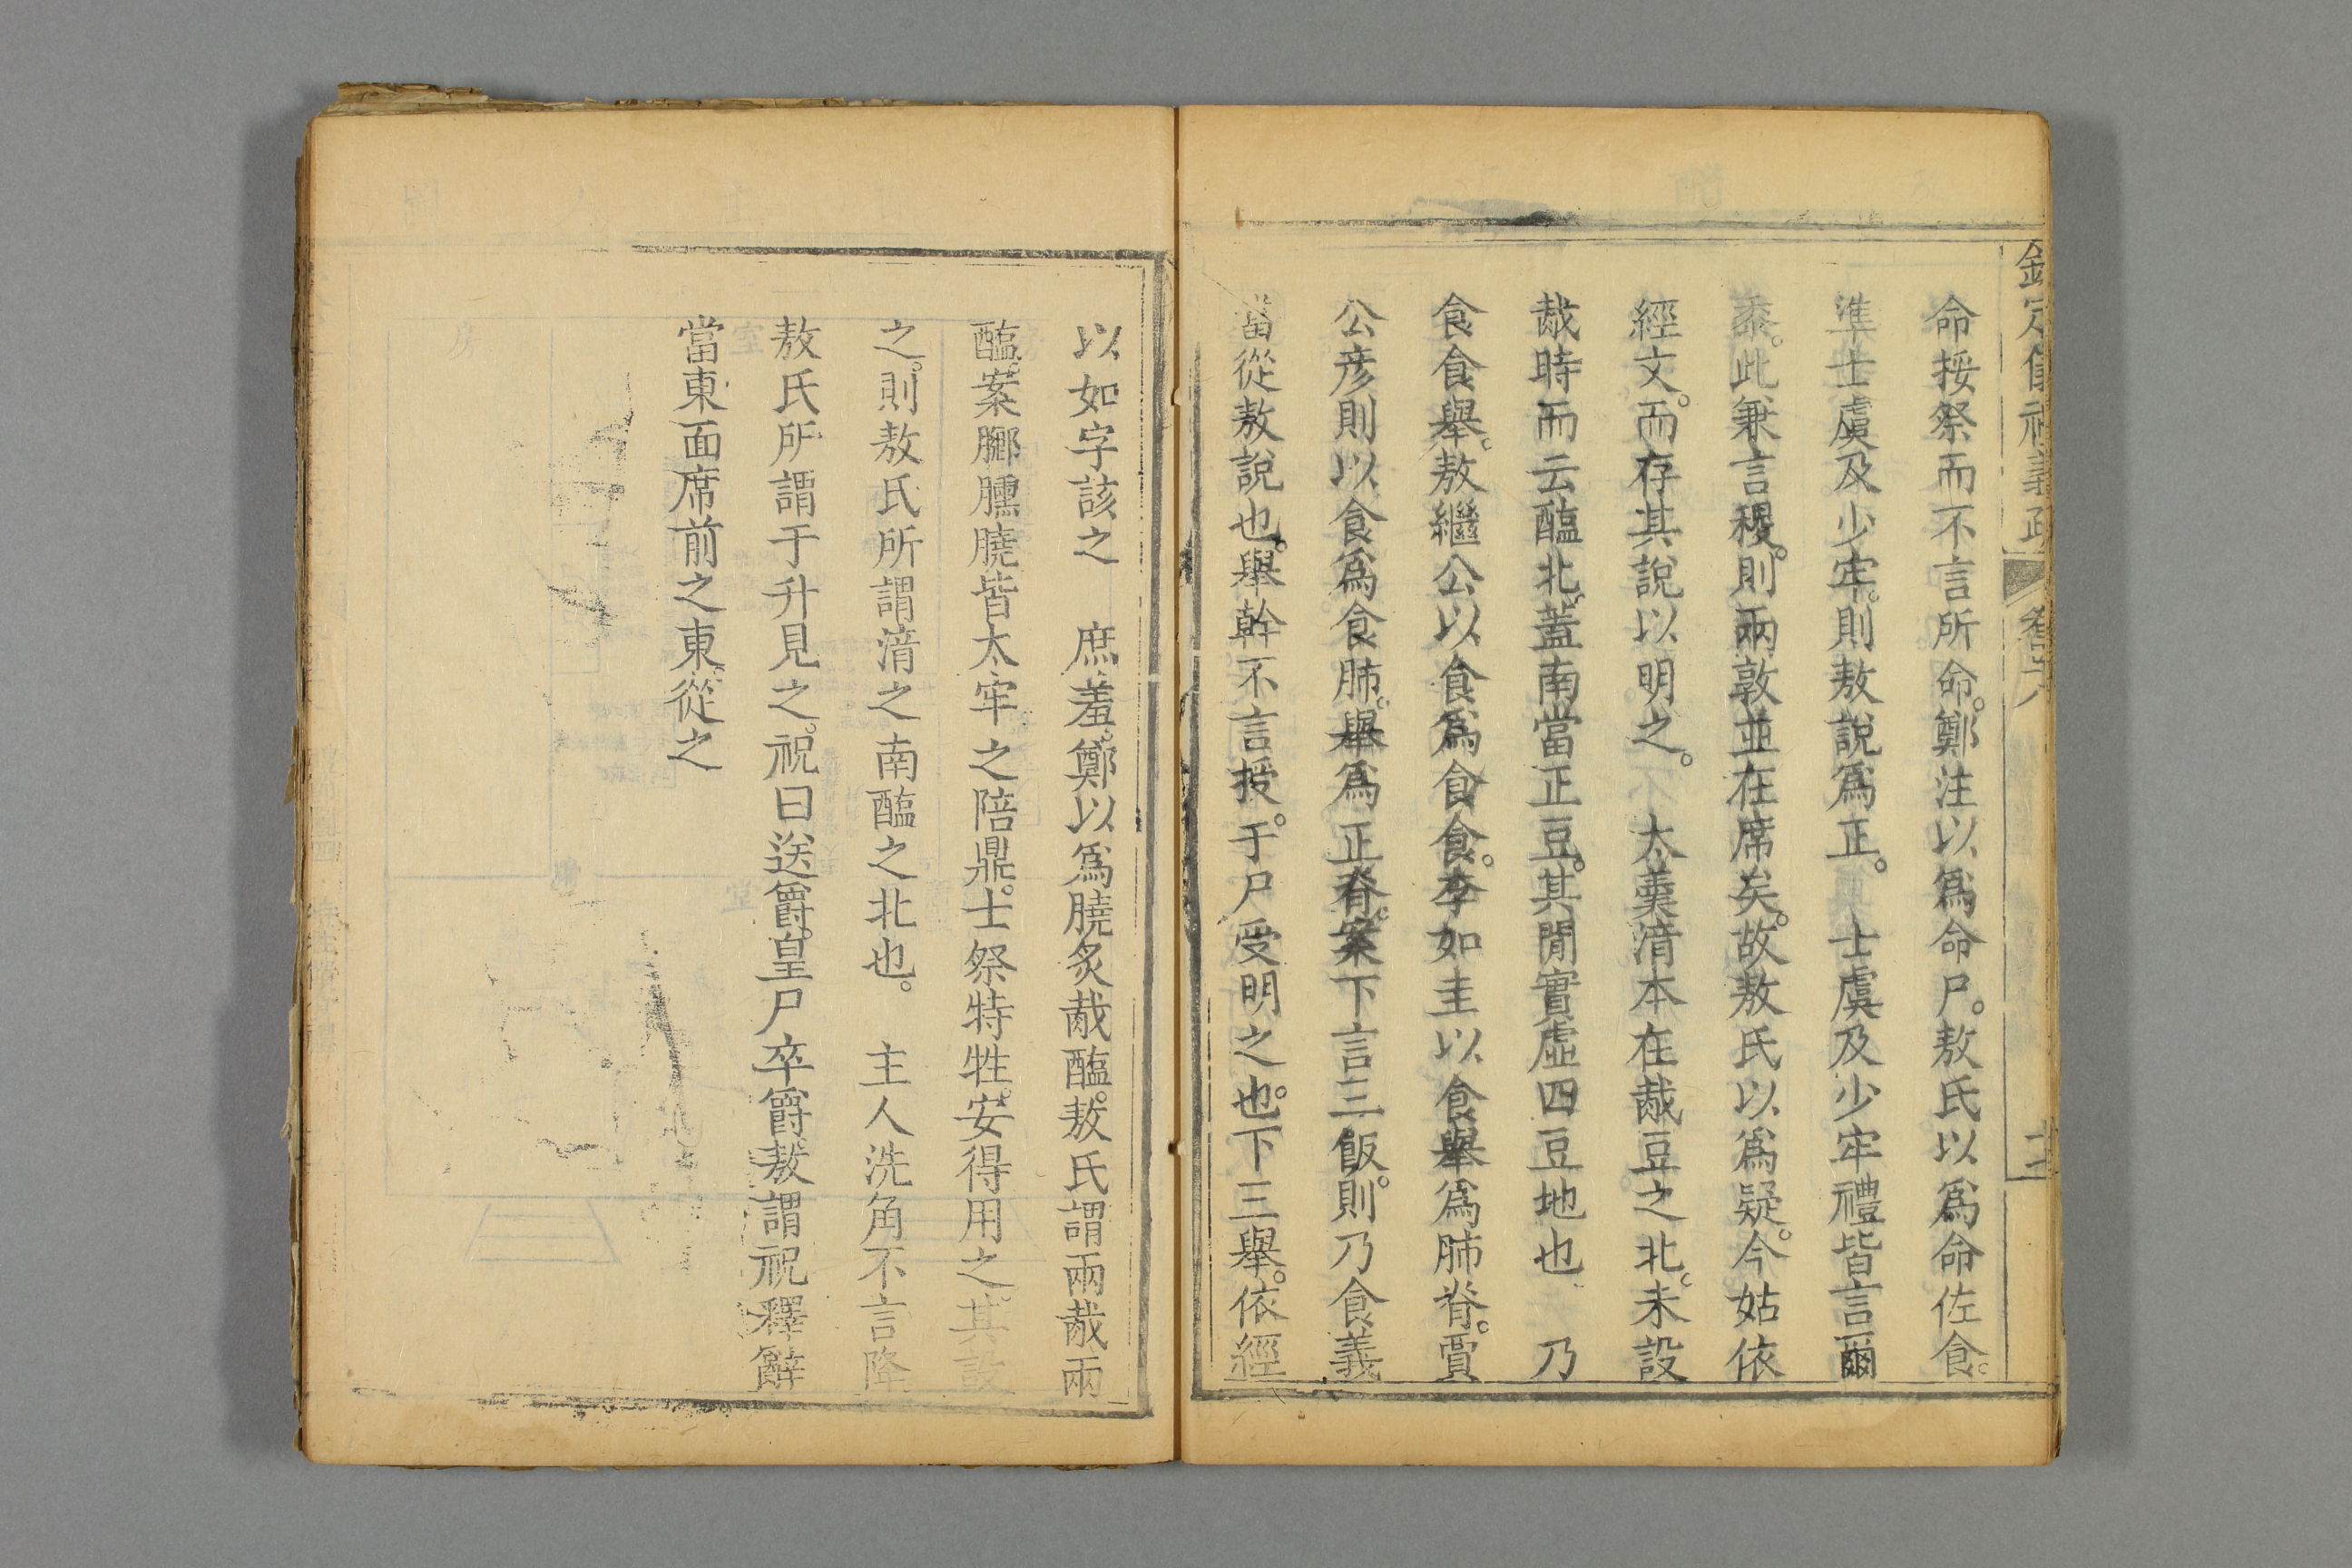 欽定儀禮義疏 卷 六
命挼祭而不言所命。鄭注以爲命尸。敖氏以爲命佐食。
準士虞及少牢。則敖說爲正。 士虞及少牢禮皆言爾
黍。此兼言稷。則兩敦並在席矣。故敖氏以爲疑。今姑依
經文。而存其說以明之。 太羹湇本在胾豆之北。未設
胾時而云醢北。蓋南當正豆。其閒實虛四豆地也 乃
食食舉。敖繼公以食爲食食。李如圭以食舉爲肺脊。賈
公彥則以食爲食肺。舉爲正脊。案下言三飯。則乃食義
當從敖說也。舉幹不言授。于尸受明之也。下三舉。依經
以如字該之 庶羞。鄭以爲膮炙胾醢。敖氏謂兩胾兩
醢。案膷臐膮皆太牢之陪鼎。士祭特牲。安得用之。其設
之。則敖氏所謂湇之南醢之北也。 主人洗角不言降
敖氏所謂于升見之。祝曰送爵。皇尸卒爵。敖謂祝釋辭
當東面席前之東。從之